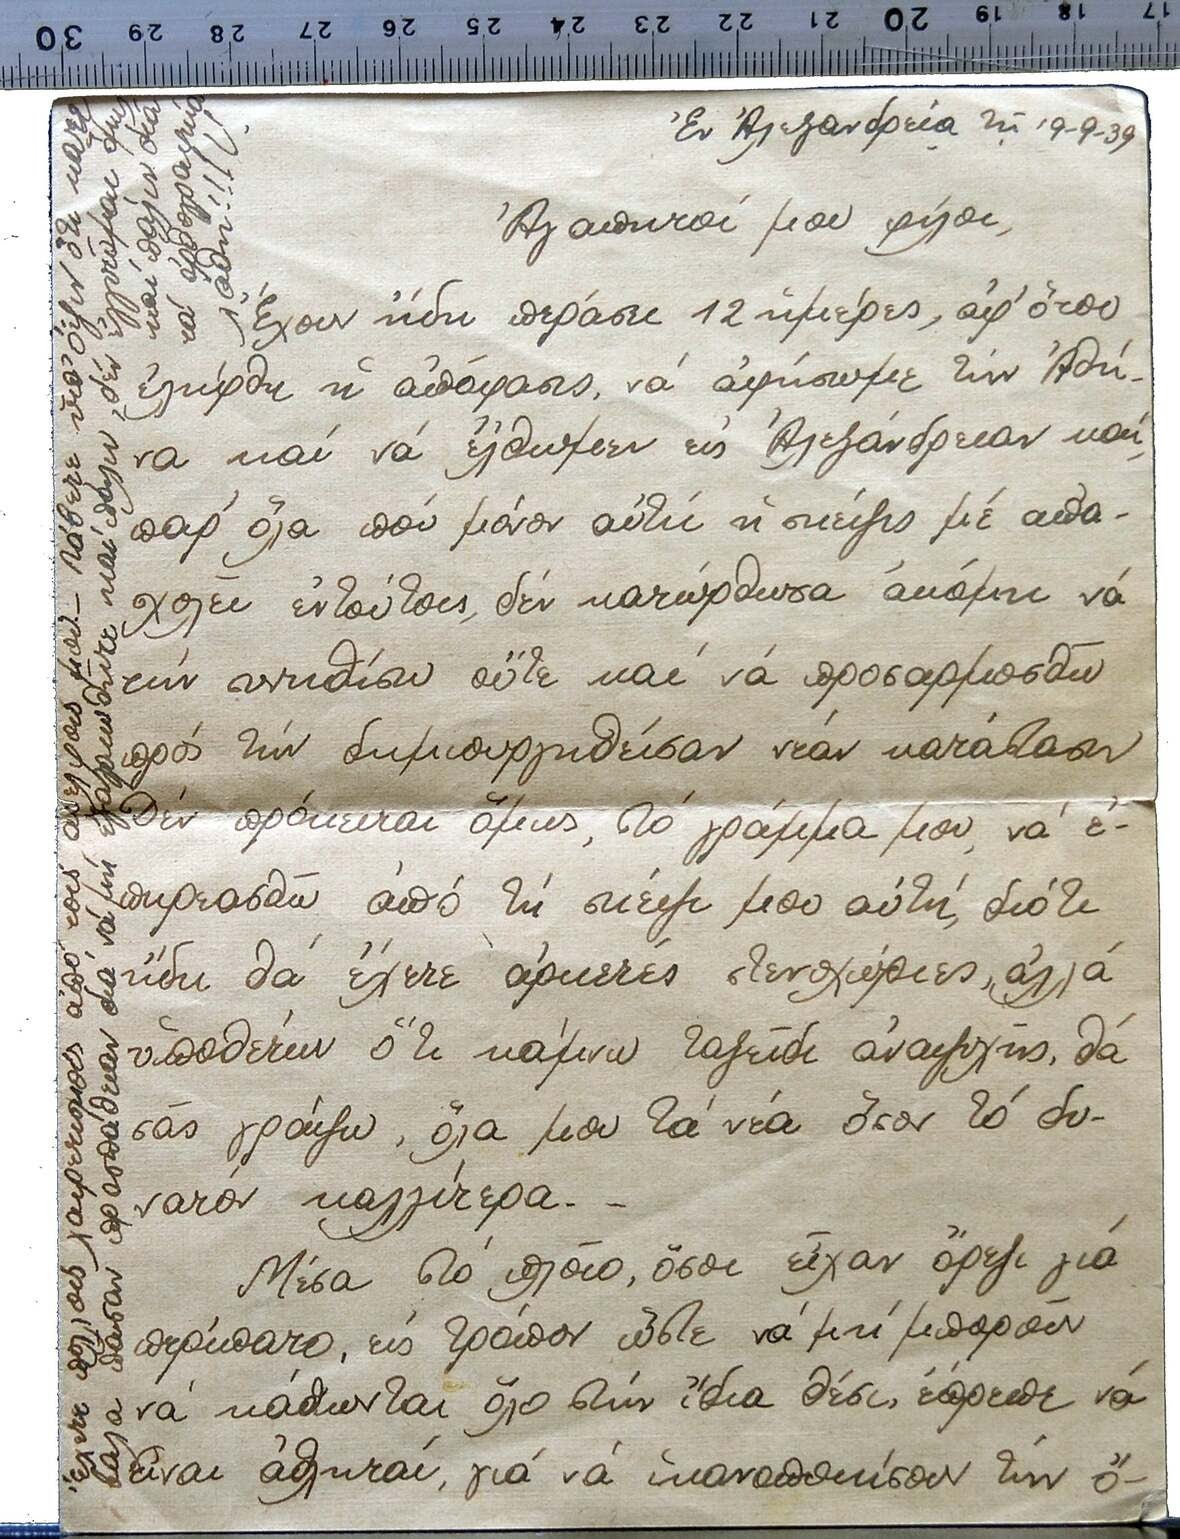 30 29 28 27 26 25 24 23 22 21 20 19 18 17
Ἐν Ἀλεξανδρείᾳ τῇ 19-9-39
Ἀγαπητοί μου φίλοι,
Ἔχουν ἤδη περάσει 12 ἡμέρες, ἀφ' ὅτου
ἐλήφθη ἡ ἀπόφασις, νά ἀφήσωμε τήν Ἀθή-
να καί νά ἔλθωμεν εἰς Ἀλεξάνδρειαν καί,
παρ' ὅλα πού μόνον αὐτή ἡ σκέψις μέ απα-
χολεῖ ἐντούτοις, δέν κατώρθωσα ἀκόμη νά
τήν συνηθίσω οὔτε καί νά προσαρμοσθῶ
πρός τήν δημιουργηθεῖσαν νέαν κατάστασιν
Δέν πρόκειται ὅμως, τό γράμμα μου, νά ἐ-
πηρεασθῶ ἀπό τή σκέψι μου αὐτή, διότι
ἤδη θά ἔχετε ἀρκετές στενοχώριες, ἀλλά
ὑποθέτων ὅτι κάμνω ταξεῖδι ἀναψυχῆς, θά
σᾶς γράψω, ὅλα μου τά νέα ὅσον τό δυ-
νατόν καλλίτερα. -
Μέσα στό πλοῖο, ὅσοι εἶχαν ὄρεξι γιά
περίπατο, εἰς τρόπον ὥστε νά μή μποροῦν
νά κάθωνται ὅλο στήν ἴδια θέσι, έπρεπε νά
εἶναι ἀθληταί, γιά νά ἱκανοποιήσουν τήν ὄ-
ἔχετε πολλούς χαιρετισμούς ἀπό τούς μου - Λάβετε ὑπ' ὄψιν ὅτι κατέ
βαλα πᾶσαν προσπάθειαν διά νά μή καί πάλιν, δέν
καί πάλιν διά
τά ὀρθογραφικά